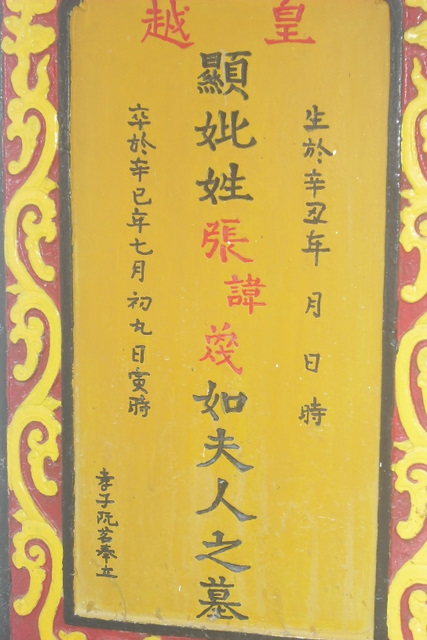 皇越
生於辛丑年 月 日 時
顯妣姓張諱茂如夫人之墓
卒於辛巳年七月初九日寅時
孝子阮茗奉立